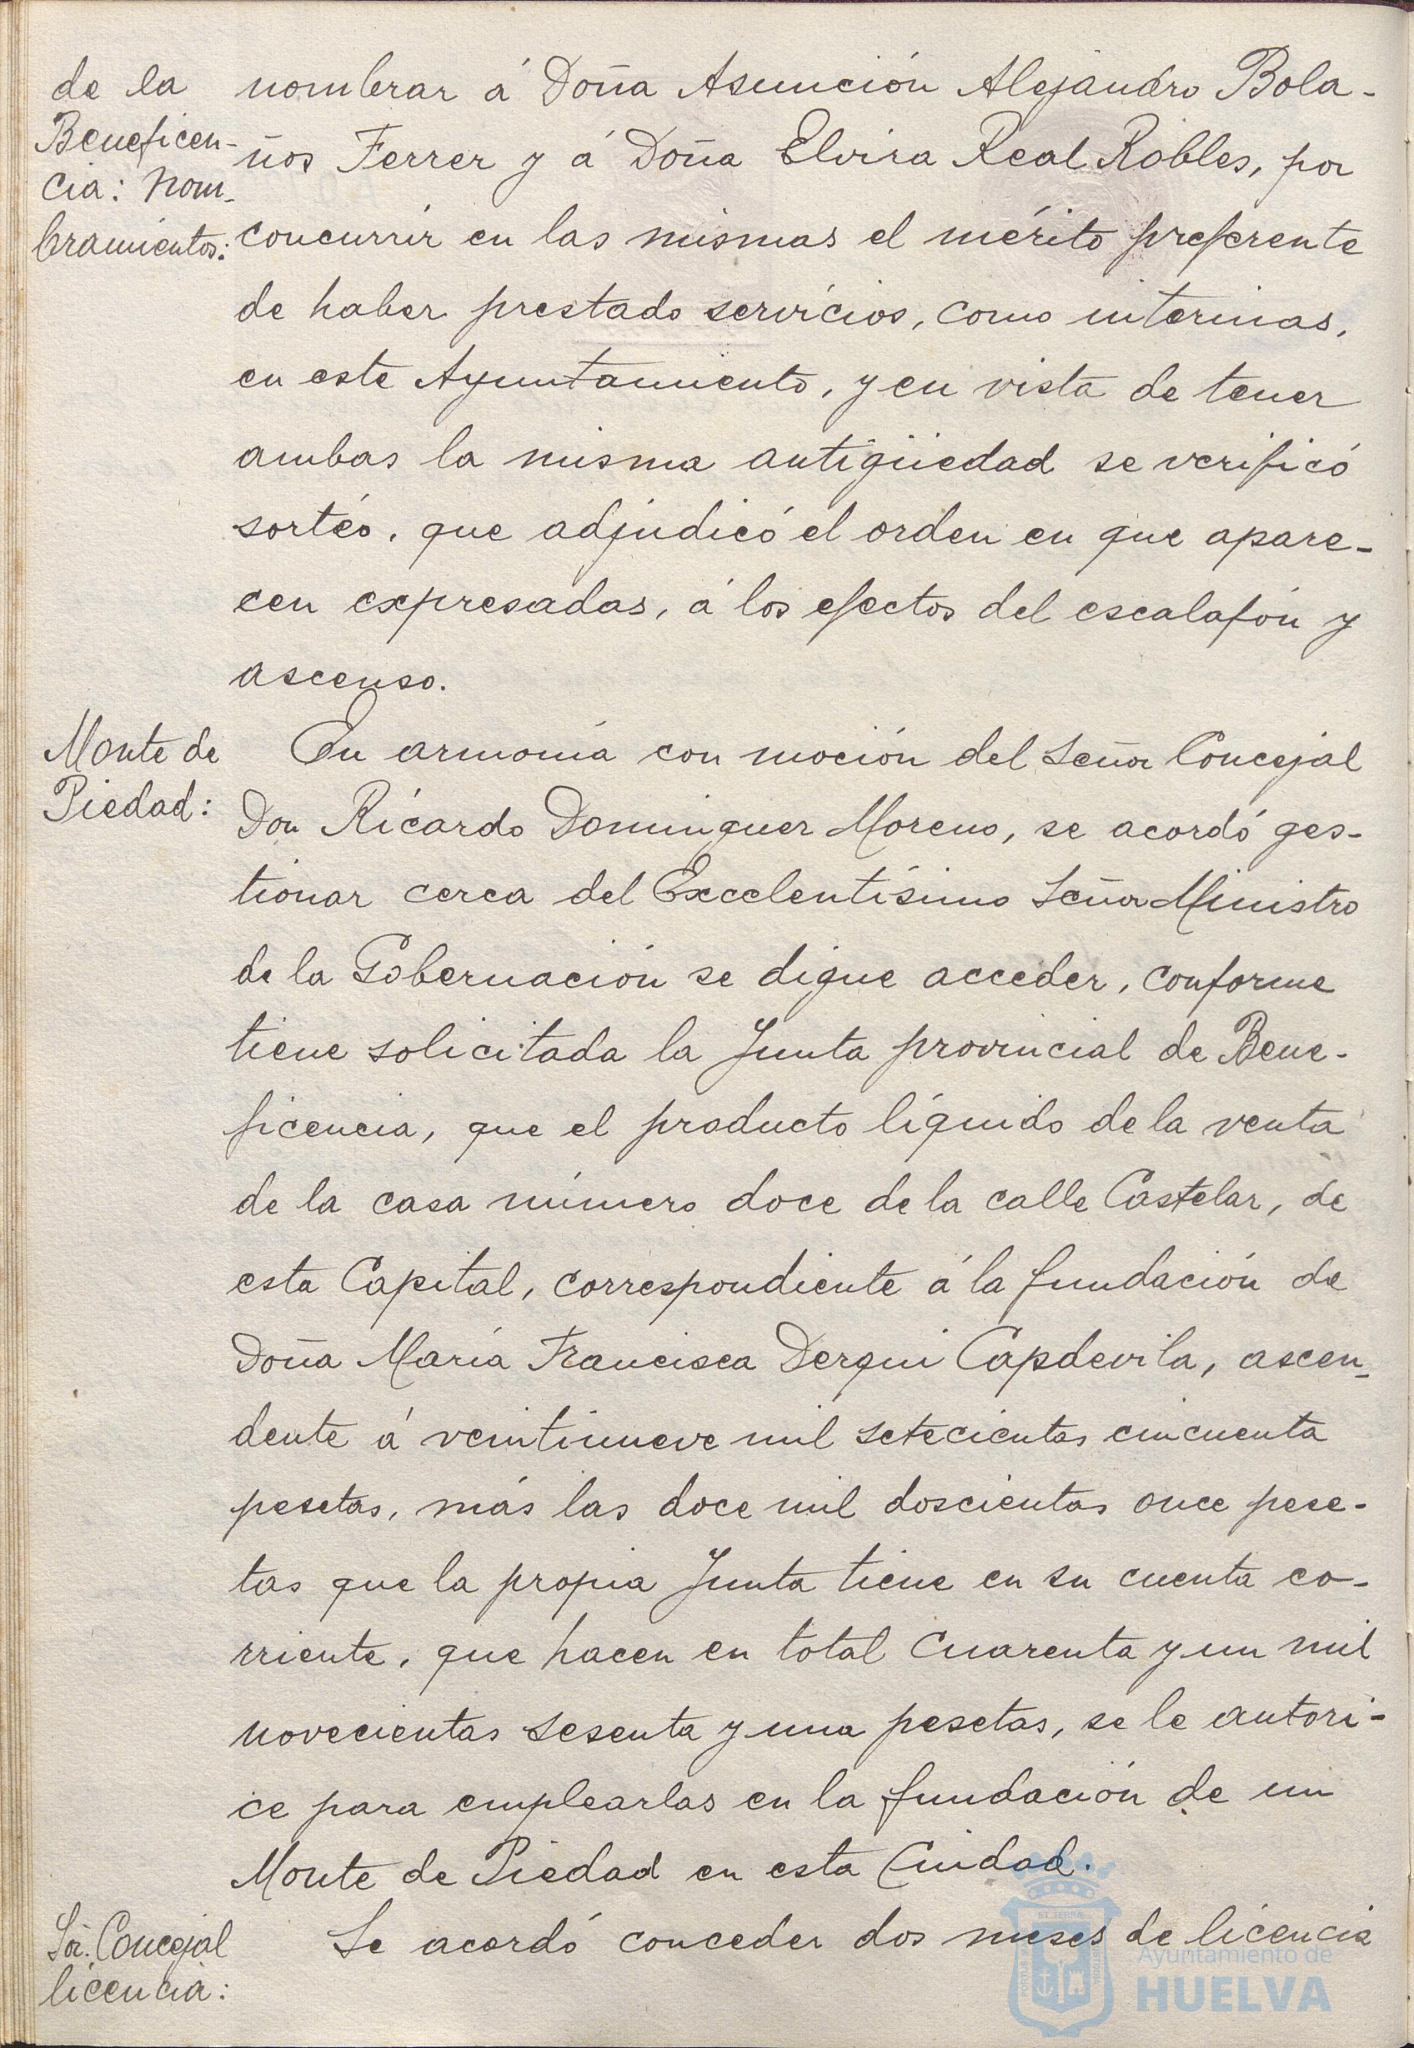 de la
Beneficen-
cia: Nom-
bramientos:
nombrar á Doña Asunción Alejandro Bola-
ños Ferrer y á Doña Elvira Real Robles, por
concurrir en las mismas el mérito preferente
de haber prestado servicios, como interinas,
en este Ayuntamiento, y en vista de tener
ambas la misma antigüedad se verificó
sortéo, que adjudicó el orden en que apare-
cen expresadas, á los efectos del escalafón y
ascenso.
Monte de
Piedad:
En armonía con moción del Señor Concejal
Don Ricardo Dominguer Moreno, se acordó ges-
tionar cerca del Excelentísimo Señor Ministro
de la Gobernación se digne acceder, conforme
tiene solicitada la Junta provincial de Bene-
ficencia, que el producto líquido de la venta
de la casa número doce de la calle Castelar, de
esta Capital, correspondiente á la fundación de
Doña María Francisca Derqui Capdevila, ascen-
dente á veintinueve mil setecientas cincuenta
pesetas, más las doce mil doscientas once pese-
tas que la propia Junta tiene en su cuenta co-
rriente, que hacen en total cuarenta y un mil
novecientas sesenta y una pesetas, se le autori-
ce para emplearlas en la fundación de un
Monte de Piedad en esta Ciudad.
Sr. Concejal
licencia:
Se acordó conceder dos meses de licencia
Ayuntamiento de
HUELVA